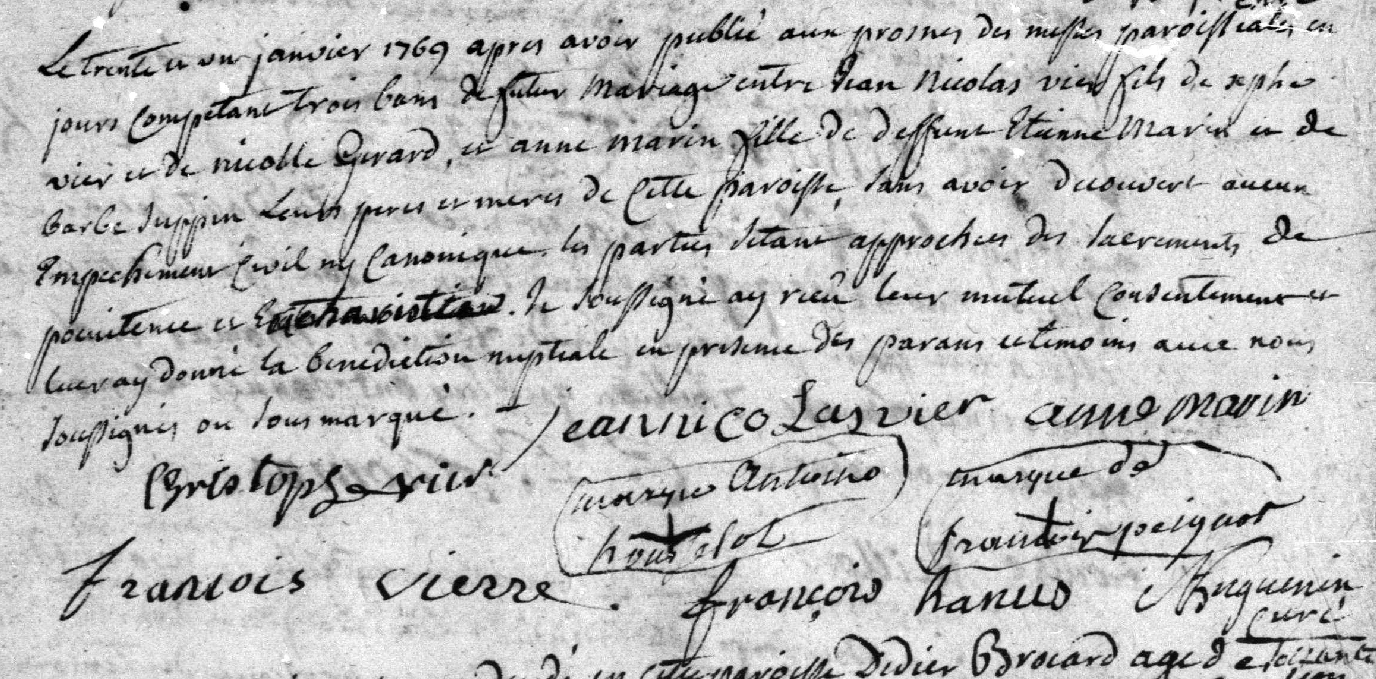 Le trente et un janvier 1769 apres avoir publié aux prosnes des messes paroissiales en
jours Competant trois bans de futur Mariage entre Jean Nicolas vier fils de
vier et de nicolle Gerard, et anne marin fille de deffunt Etienne Marin et de
barbe Juppin Leurs peres et meres de Cette paroisse, sans avoir decouvert aucun
Empechement Civil ny Canonique, les parties s'étant approchées des sacrements de
pénitence et . Je soussigné ay reçu leur mutuel Consentement et
leur ay donné la bénédiction nuptiale en presence des parans et temoins avec nous
soussignés ou sousmarqué.
Jean nicolas vier anne marin
Christophe vier
marque Antoine
houselot
marque de
francois peignot
francois vierre.
françois hanus
Huguenin
curé
en Cette paroisse Didier Brocard agé de soixante